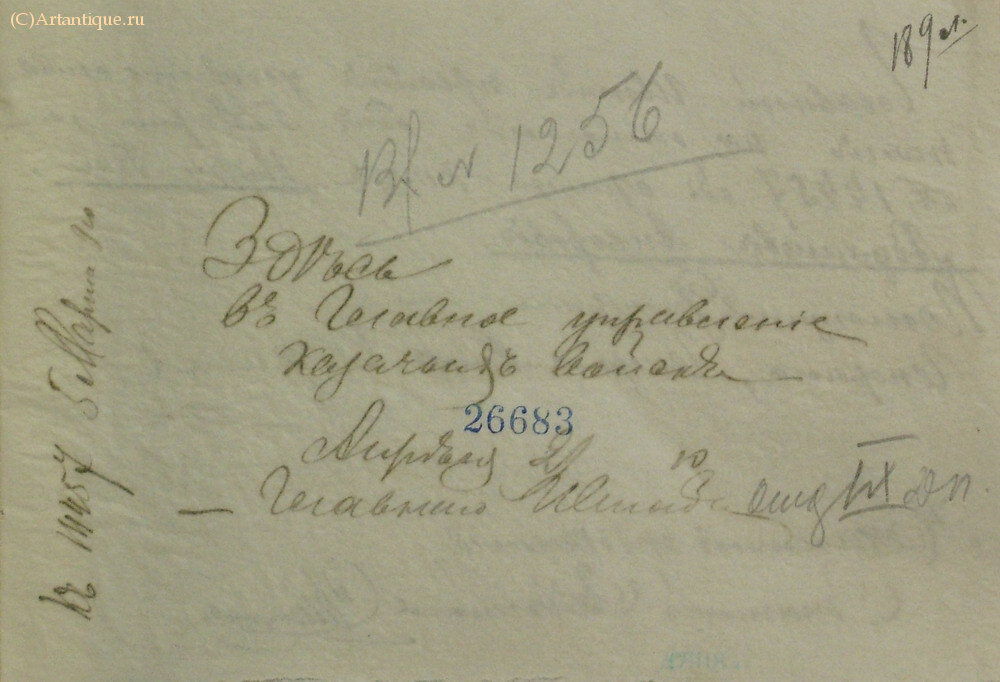 (C)Artantique.ru
189 л.
№ 1256
Здѣсь
Въ Главное управленіе
казачьихъ войскъ
26683
Апрѣля 21
Главнаго Штаба отд IX
къ 11457 5 Марта